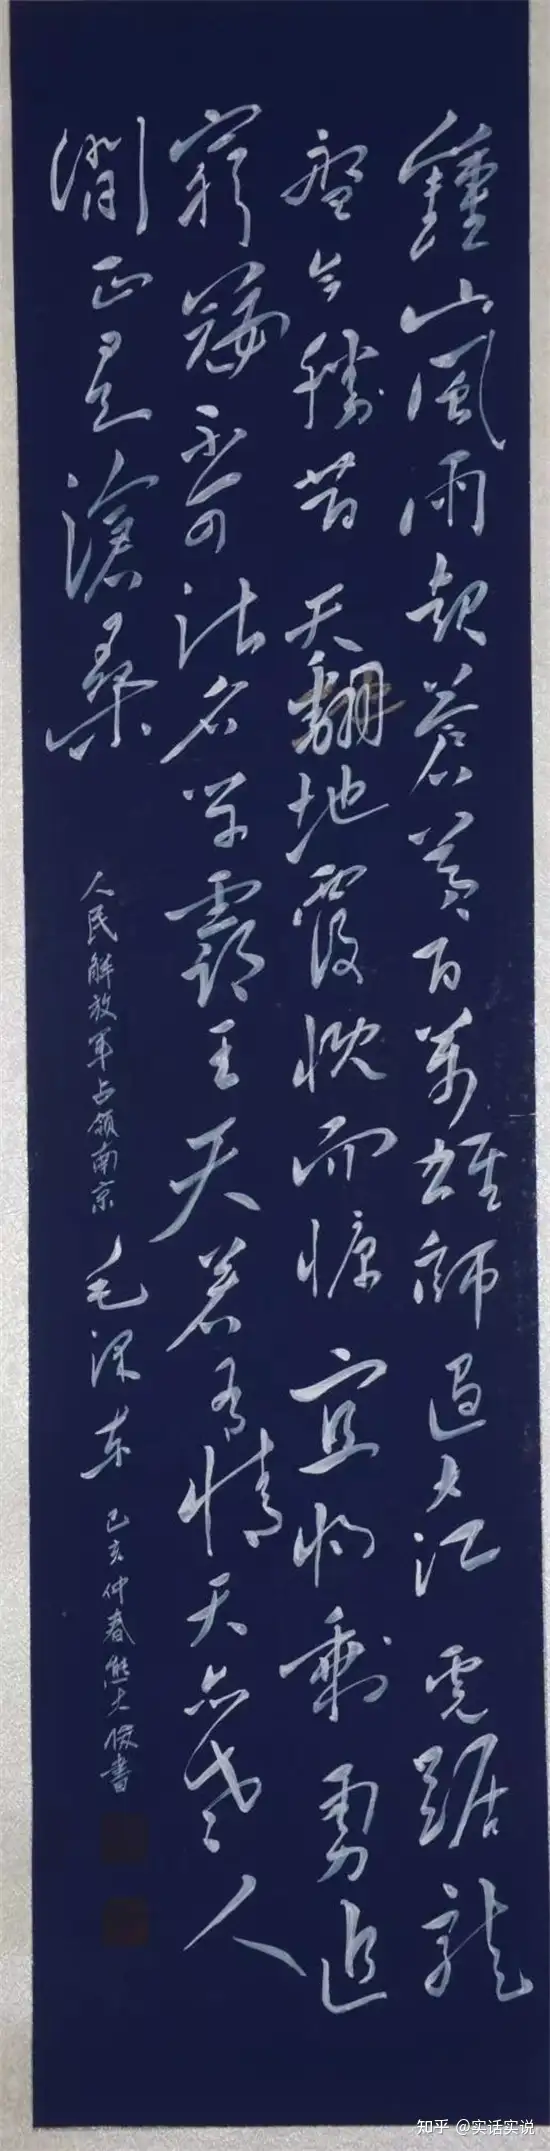 鍾山風雨起蒼黃百萬雄師過大江虎踞龍
盤今勝昔天翻地覆慨而慷宜將剩勇追
窮寇不可沽名學霸王天若有情天亦老人
間正是滄桑
人民解放軍占領南京 毛澤東 己亥仲春熊士俊書
知乎 @实话实说